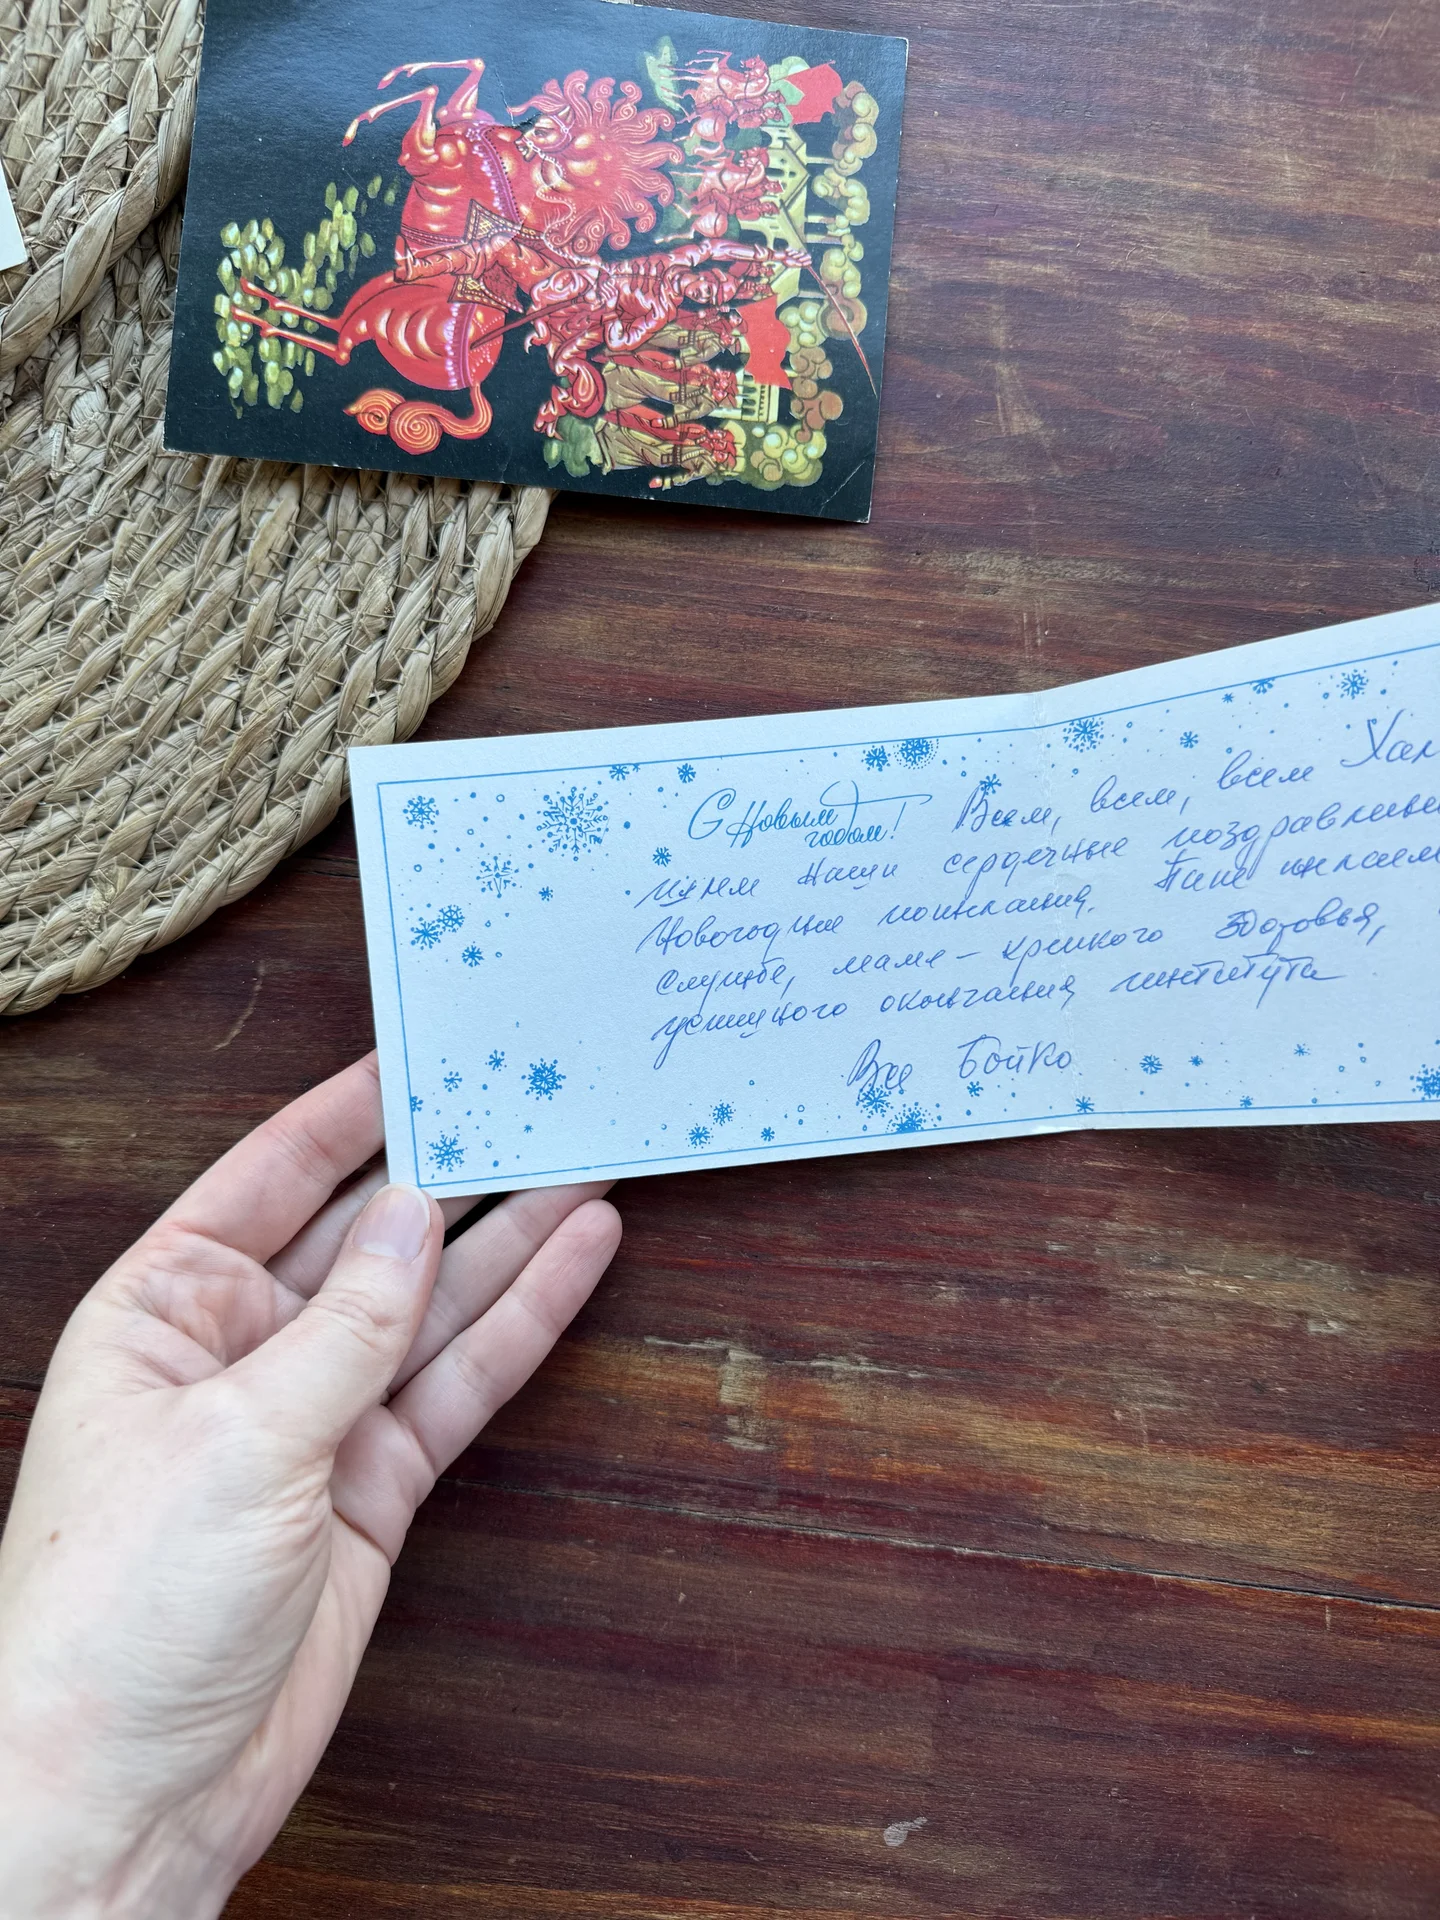 С Новым
годом!
Всем, всем, всем Хар
шлем наши сердечные поздравлени
Новогодние пожелания. Папе желаем
службе, маме – крепкого здоровья,
успешного окончания института
Все Бойко